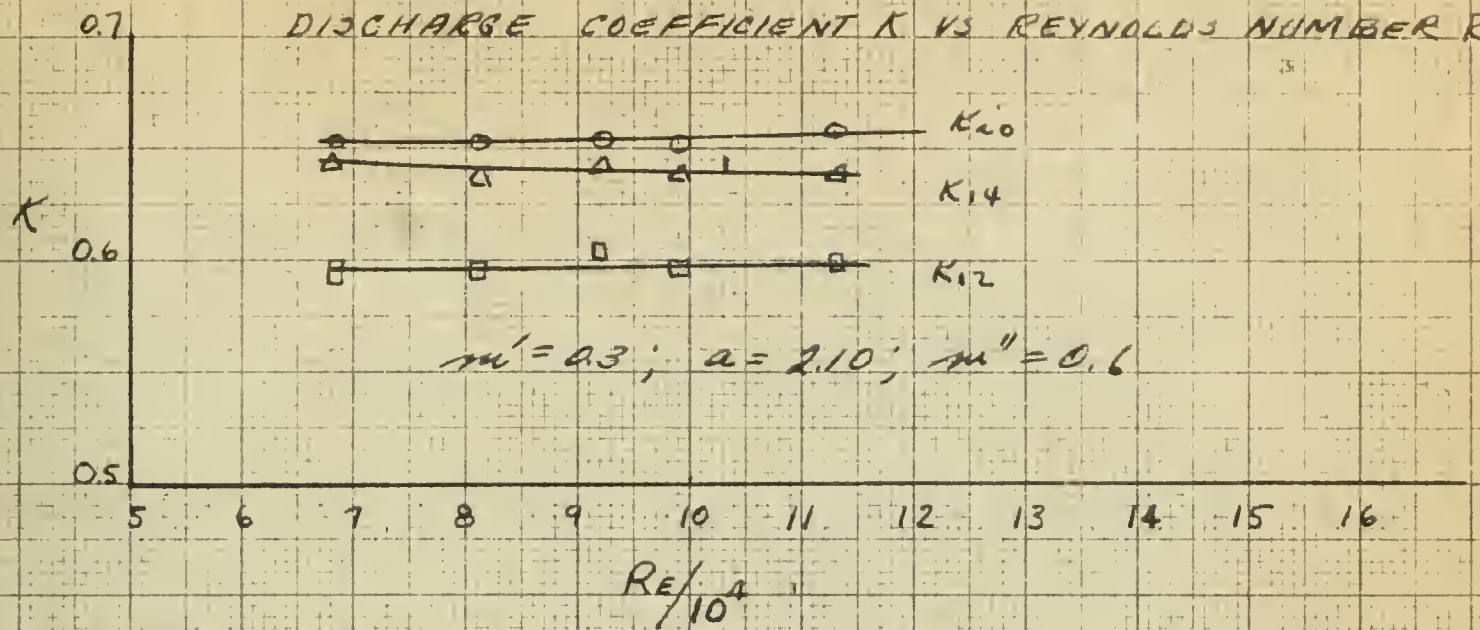 DISCHARGE COEFFICIENT K VS REYNOLDS NUMBER R
0.7
K
0.6
0.5
K₁₄
K₁₂
m' = 0.3; a = 2.10; m" = 0.6
5 6 7 8 9 10 11 12 13 14 15 16
RE/10⁴